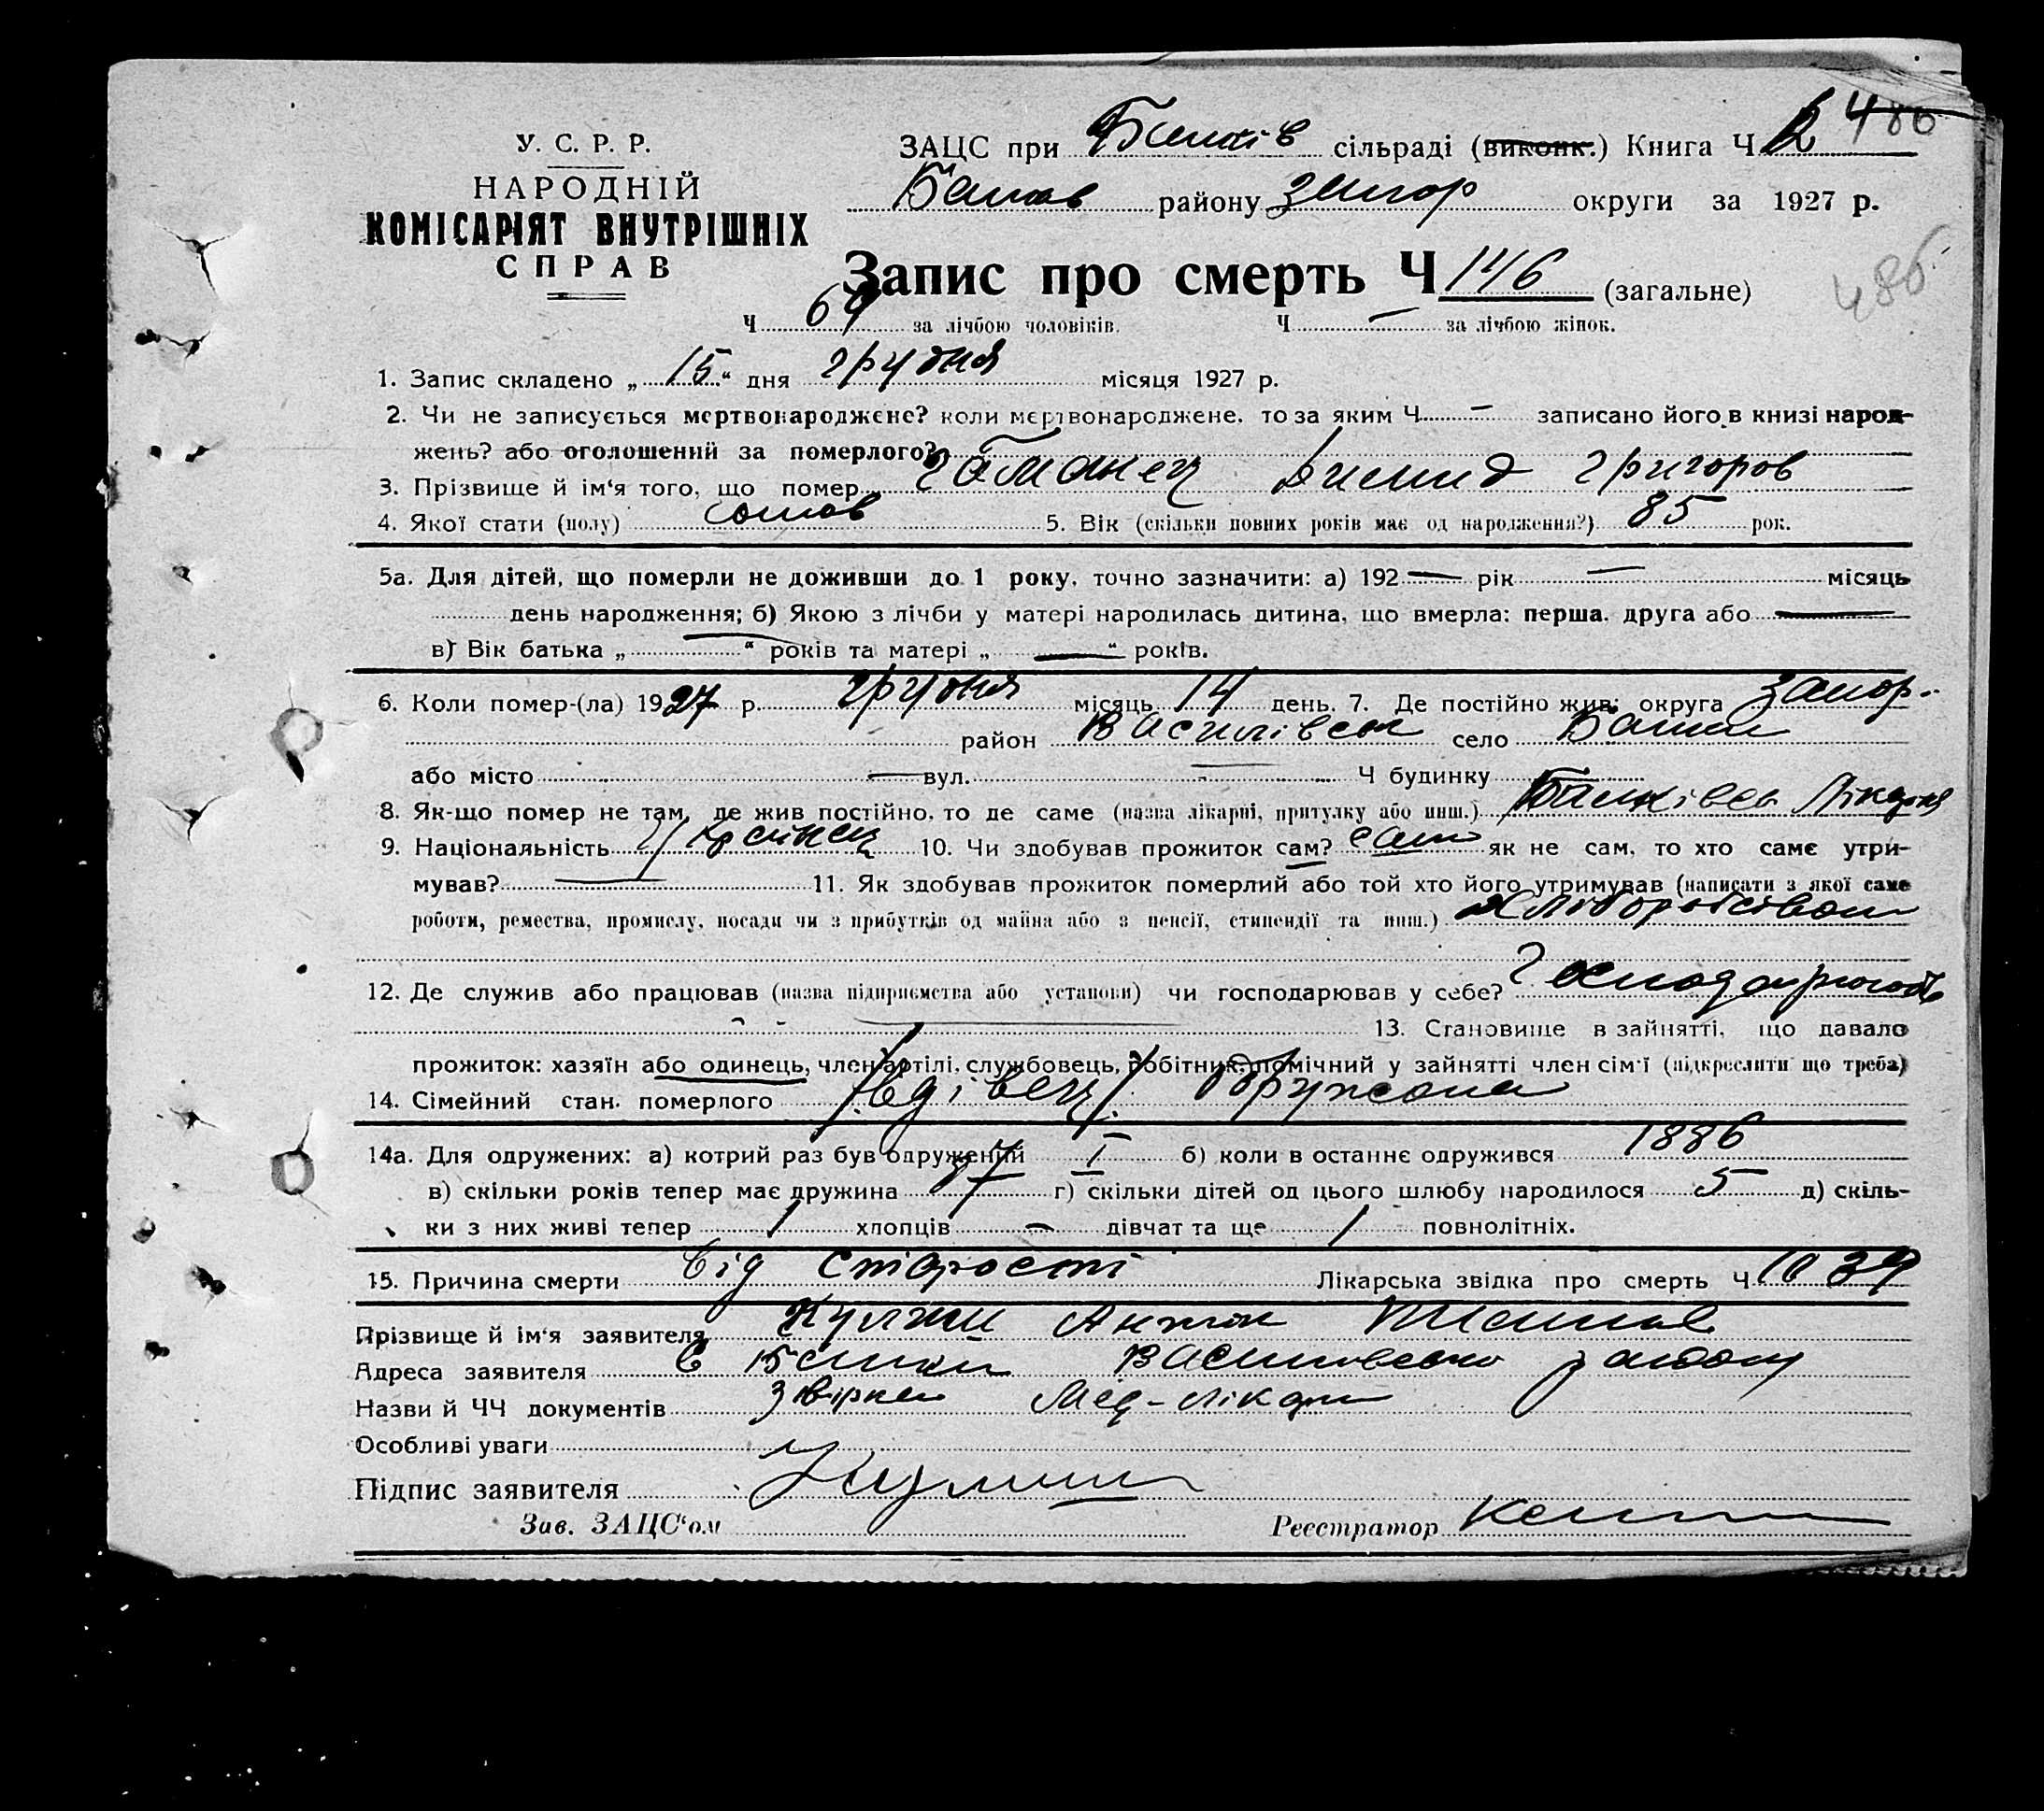 У. С. Р. Р.
НАРОДНІЙ
КОМІСАРІЯТ ВНУТРІШНІХ
СПРАВ
486
ЗАЦС при сільраді (виконк.) Книга Ч
району Запор округи за 1927 р.
486
Запис про смерть Ч 146 (загальне)
Ч 69 за лічбою чоловіків. Ч — за лічбою жінок.
1. Запис складено „ 15 “ дня грудня місяця 1927 р.
2. Чи не записується мертвонароджене? коли мертвонароджене, то за яким Ч — записано його в книзі народ-
жень? або оголошений за померлого?
3. Прізвище й ім‘я того, що помер Григоров
4. Якої стати (полу) 5. Вік (скільки повних років має од народження?) 85 рок.
5а. Для дітей, що померли не доживши до 1 року, точно зазначити: а) 192 — рік — місяць
день народження; б) Якою з лічби у матері народилась дитина, що вмерла: перша, друга або —
в) Вік батька „ — “ років та матері „ — “ років.
6. Коли помер-(ла) 1927 р. грудня місяць 14 день. 7. Де постійно жив: округа Запор.
район Василівськ село Балки
або місто — вул. — Ч будинку
8. Як-що помер не там, де жив постійно, то де саме (назва лікарні, притулку або инш.)
9. Національність Українец 10. Чи здобував прожиток сам? сам як не сам, то хто саме утри-
мував? — 11. Як здобував прожиток померлий або той хто його утримував (написати з якої саме
роботи, ремества, промислу, посади чи з прибутків од майна або з пенсії, стипендії та инш.) хліборобством
12. Де служив або працював (назва підприємства або установи) чи господарював у себе?
— 13. Становище в зайнятті, що давало
прожиток: хазяїн або одинець, член артілі, службовець, робітник, помічний у зайнятті член сім‘ї (підкреслити що треба)
14. Сімейний стан. померлого (вдівец)
14а. Для одружених: а) котрий раз був одружений I б) коли в останнє одружився 1886
в) скільки років тепер має дружина г) скільки дітей од цього шлюбу народилося 5 д) скіль-
ки з них живі тепер 1 хлопців — дівчат та ще 1 повнолітніх.
15. Причина смерти від старості Лікарська звідка про смерть Ч 1039
Прізвище й ім‘я заявителя Антон
Адреса заявителя с Балки району
Назви й ЧЧ документів
Особливі уваги
Підпис заявителя
Зав. ЗАЦС‘ом Реєстратор